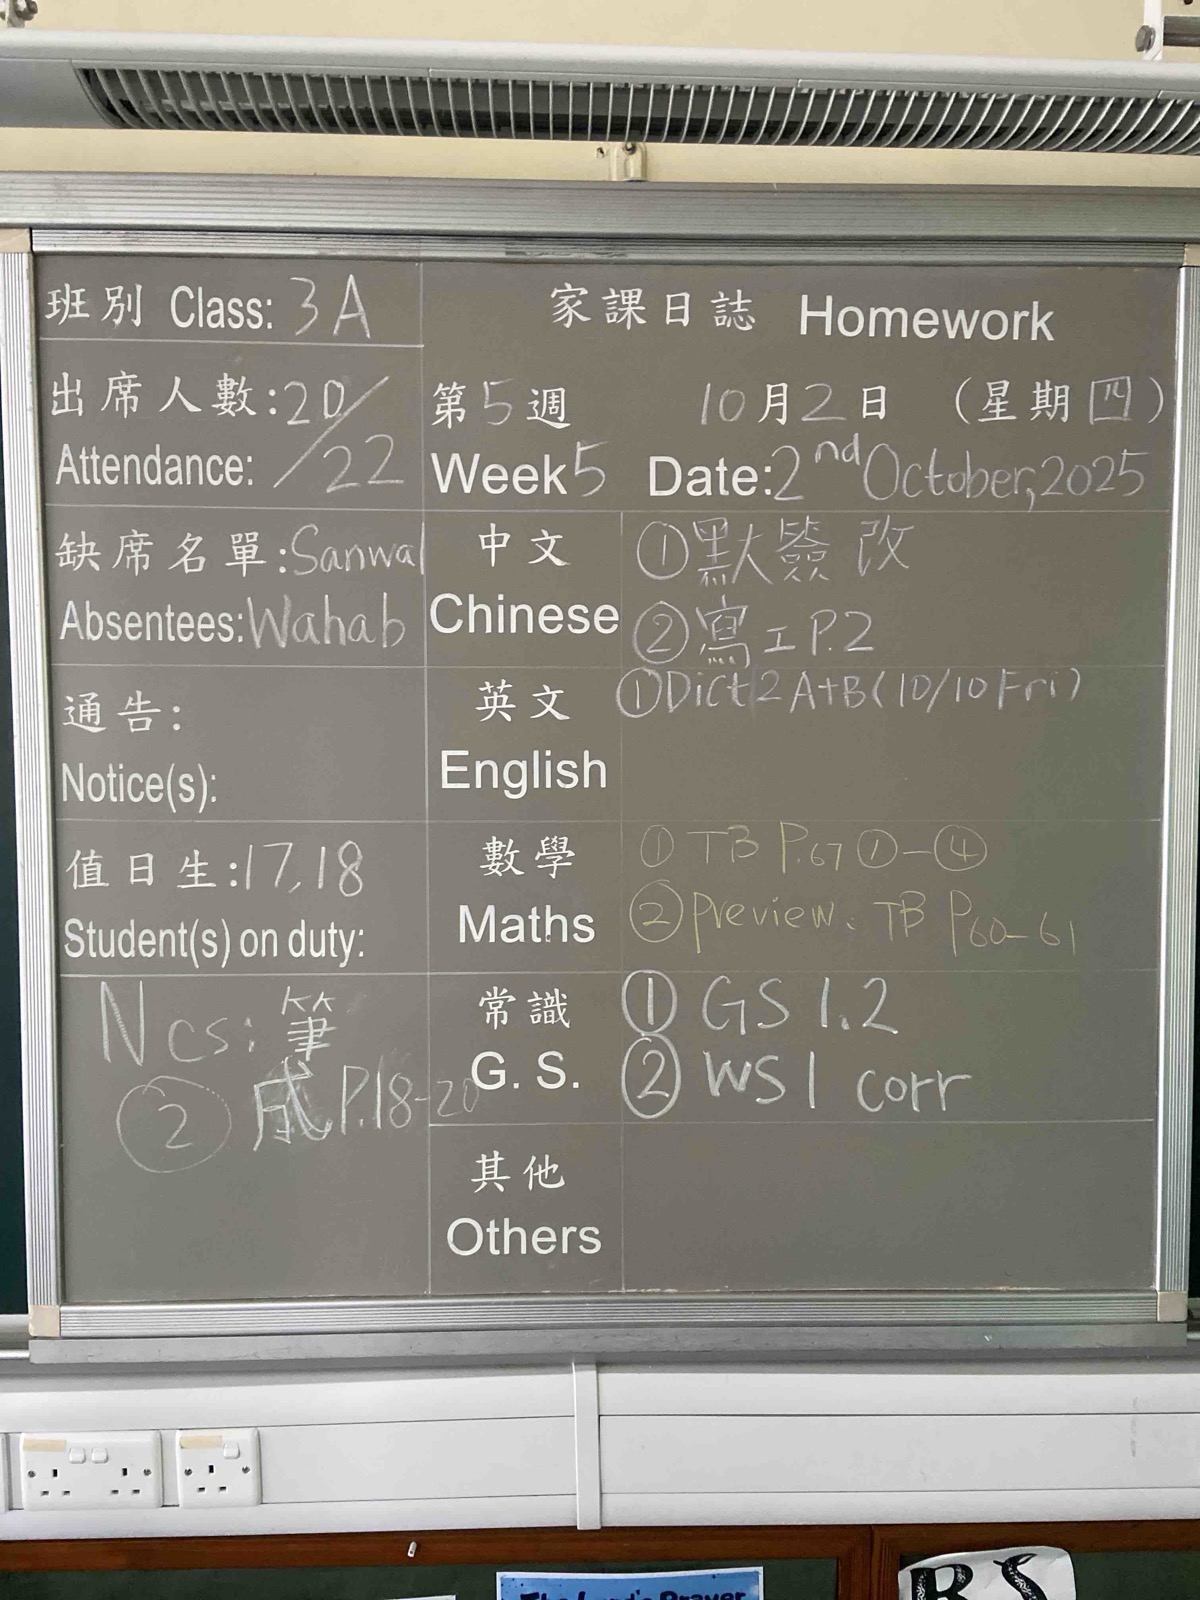 班別 Class: 3A
家課日誌 Homework
出席人數: 20/
Attendance: /22
第5週 10月2日 (星期四)
Week 5 Date: 2nd October, 2025
缺席名單: Sanwal
Absentees: Wahab
中文
Chinese
①默簽改
②寫工P.2
通告:
Notice(s):
英文
English
①Dict 2 A+B (10/10 Fri)
值日生: 17, 18
Student(s) on duty:
數學
Maths
① TB P.67 ①-④
②Preview: TB P60-61
Ncs: 筆
② P.18-20
常識
G. S.
① GS 1.2
② WS 1 corr
其他
Others
The Lord's Prayer